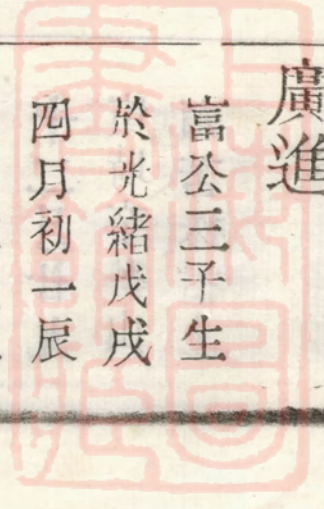 廣進
富公三子生
於光緒戊戌
四月初一辰